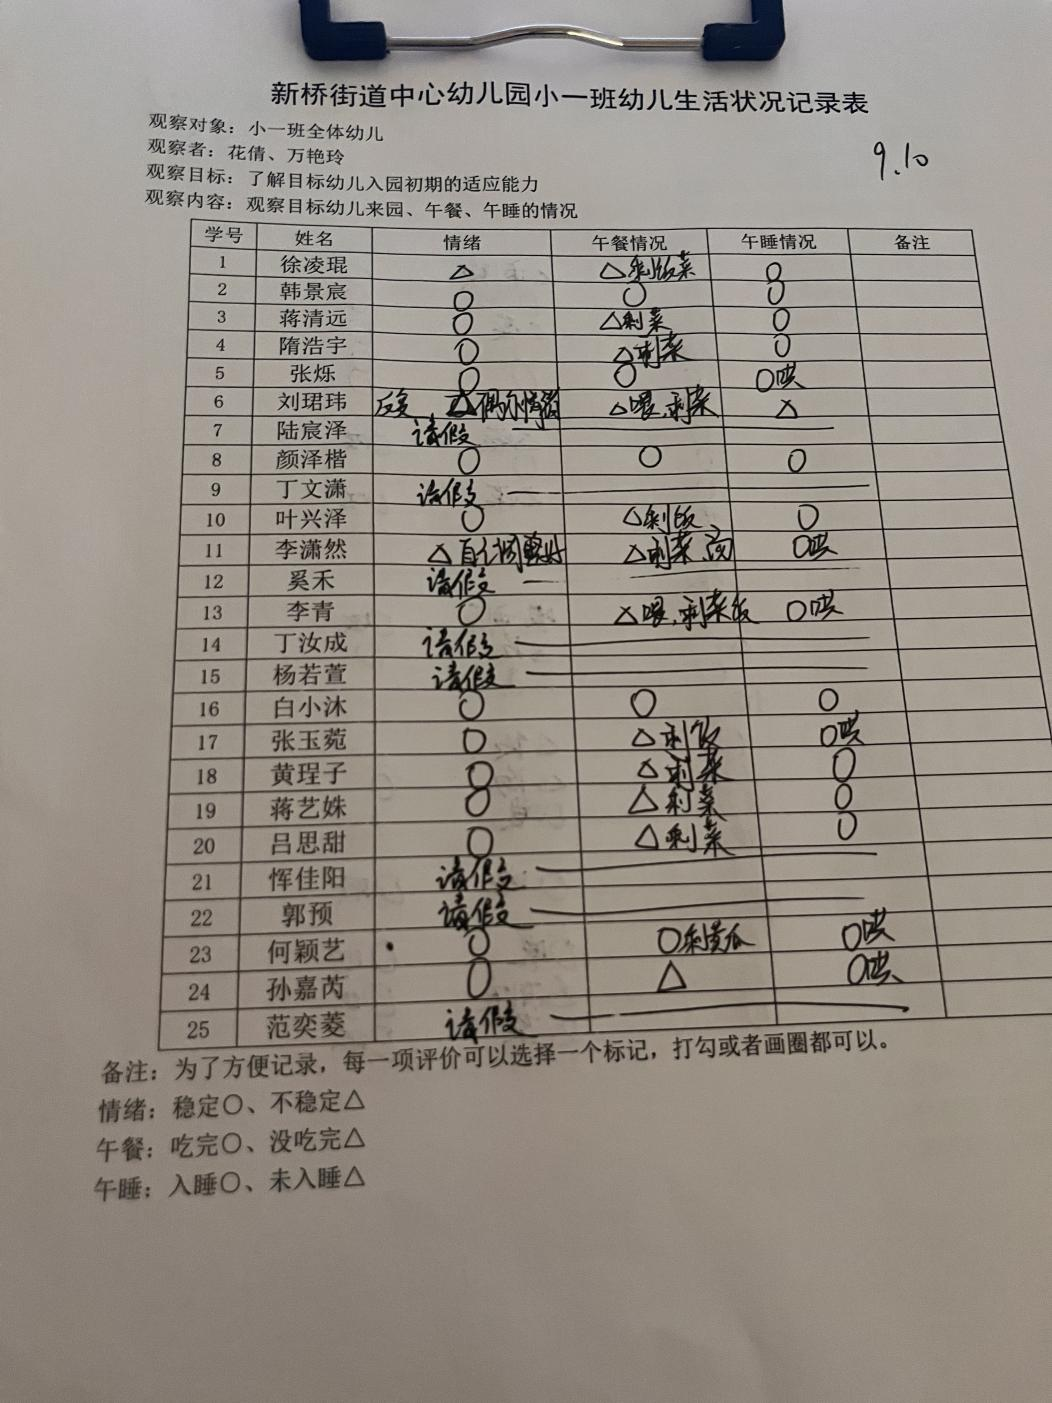 新桥街道中心幼儿园小一班幼儿生活状况记录表
9.10
观察对象：小一班全体幼儿
观察者：花倩、万艳玲
观察目标：了解目标幼儿入园初期的适应能力
观察内容：观察目标幼儿来园、午餐、午睡的情况
学号 姓名 情绪 午餐情况 午睡情况 备注
1 徐凌琨 △ △剩饭菜 ○
2 韩景宸 ○ ○ ○
3 蒋清远 ○ △剩菜 ○
4 隋浩宇 ○ △剩菜 ○
5 张烁 ○ ○ ○哄
6 刘珺玮 反复 △偶尔 △喂、剩菜 △
7 陆宸泽 请假
8 颜泽楷 ○ ○ ○
9 丁文潇 请假
10 叶兴泽 ○ △剩饭 ○
11 李潇然 △自己调整好 △剩菜 ○哄
12 奚禾 请假
13 李青 ○ △喂、剩菜饭 ○哄
14 丁汝成 请假
15 杨若萱 请假
16 白小沐 ○ ○ ○
17 张玉菀 ○ △剩饭 ○哄
18 黄珵子 ○ △剩菜 ○
19 蒋艺姝 ○ △剩菜 ○
20 吕思甜 ○ △剩菜 ○
21 恽佳阳 请假
22 郭预 请假
23 何颖艺 ○ ○剩黄瓜 ○哄
24 孙嘉芮 ○ △ ○哄
25 范奕菱 请假
备注：为了方便记录，每一项评价可以选择一个标记，打勾或者画圈都可以。
情绪：稳定○、不稳定△
午餐：吃完○、没吃完△
午睡：入睡○、未入睡△